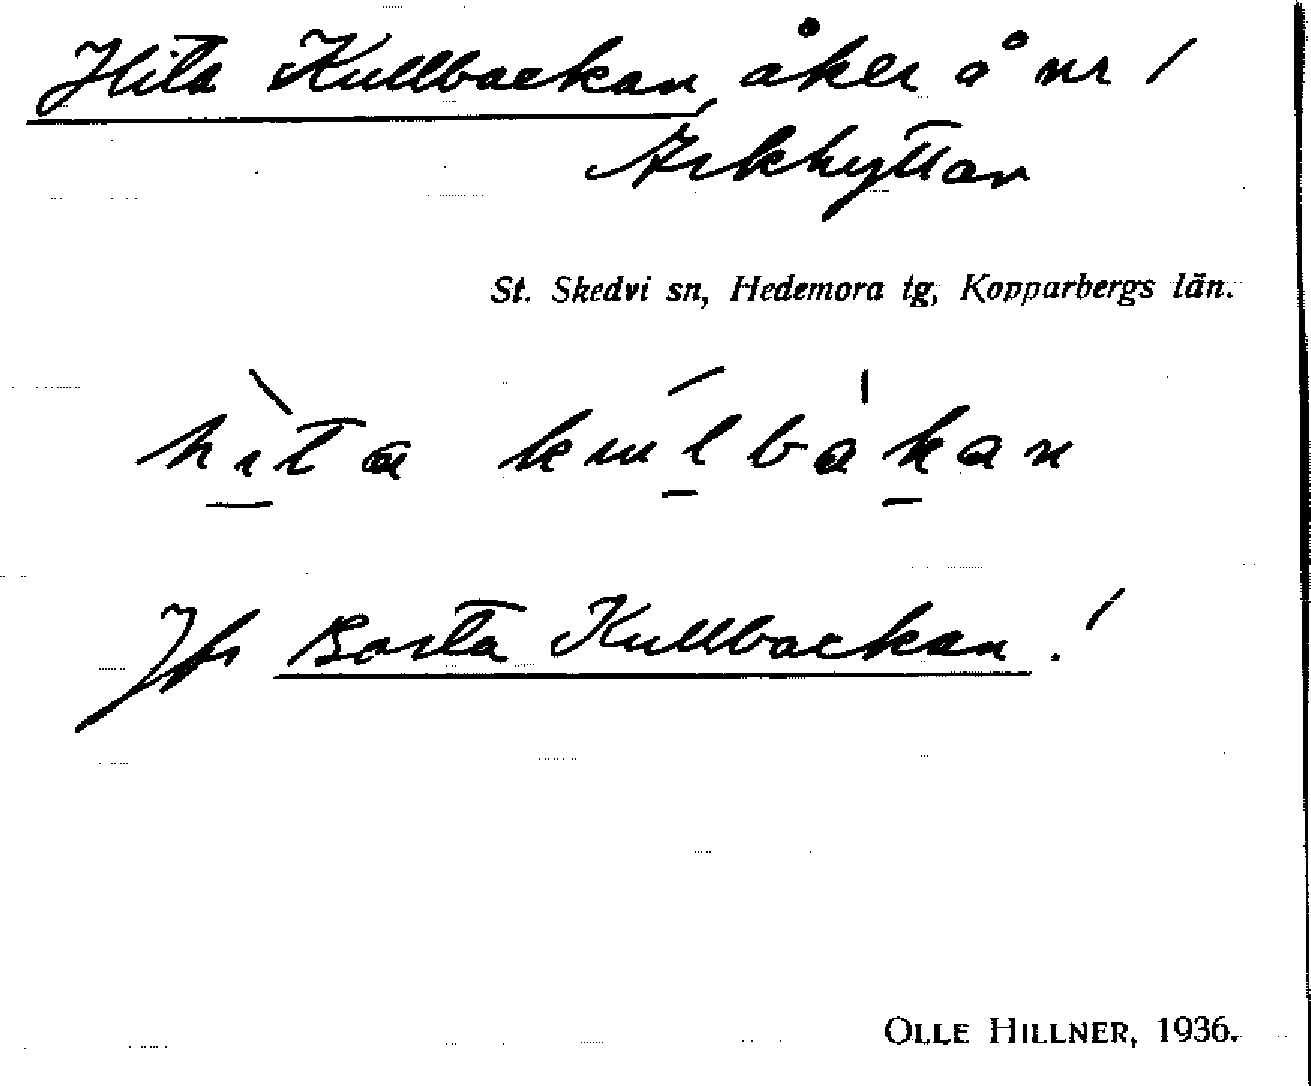 Hita Kullbackan, åker å nr 1
Arkhyttan
St. Skedvi sn, Hedemora tg, Kopparbergs län.
hìta kúlbákan
Jfr Borta Kullbackan!
OLLE HILLNER, 1936.